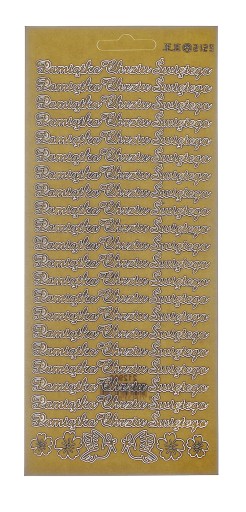 JEJE 8121
Pamiątka Chrztu Świętego
Pamiątka Chrztu Świętego
Pamiątka Chrztu Świętego
Pamiątka Chrztu Świętego
Pamiątka Chrztu Świętego
Pamiątka Chrztu Świętego
Pamiątka Chrztu Świętego
Pamiątka Chrztu Świętego
Pamiątka Chrztu Świętego
Pamiątka Chrztu Świętego
Pamiątka Chrztu Świętego
Pamiątka Chrztu Świętego
Pamiątka Chrztu Świętego
Pamiątka Chrztu Świętego
Pamiątka Chrztu Świętego
Pamiątka Chrztu Świętego
Pamiątka Chrztu Świętego
Pamiątka Chrztu Świętego
Pamiątka Chrztu Świętego
Pamiątka Chrztu Świętego
Pamiątka Chrztu Świętego